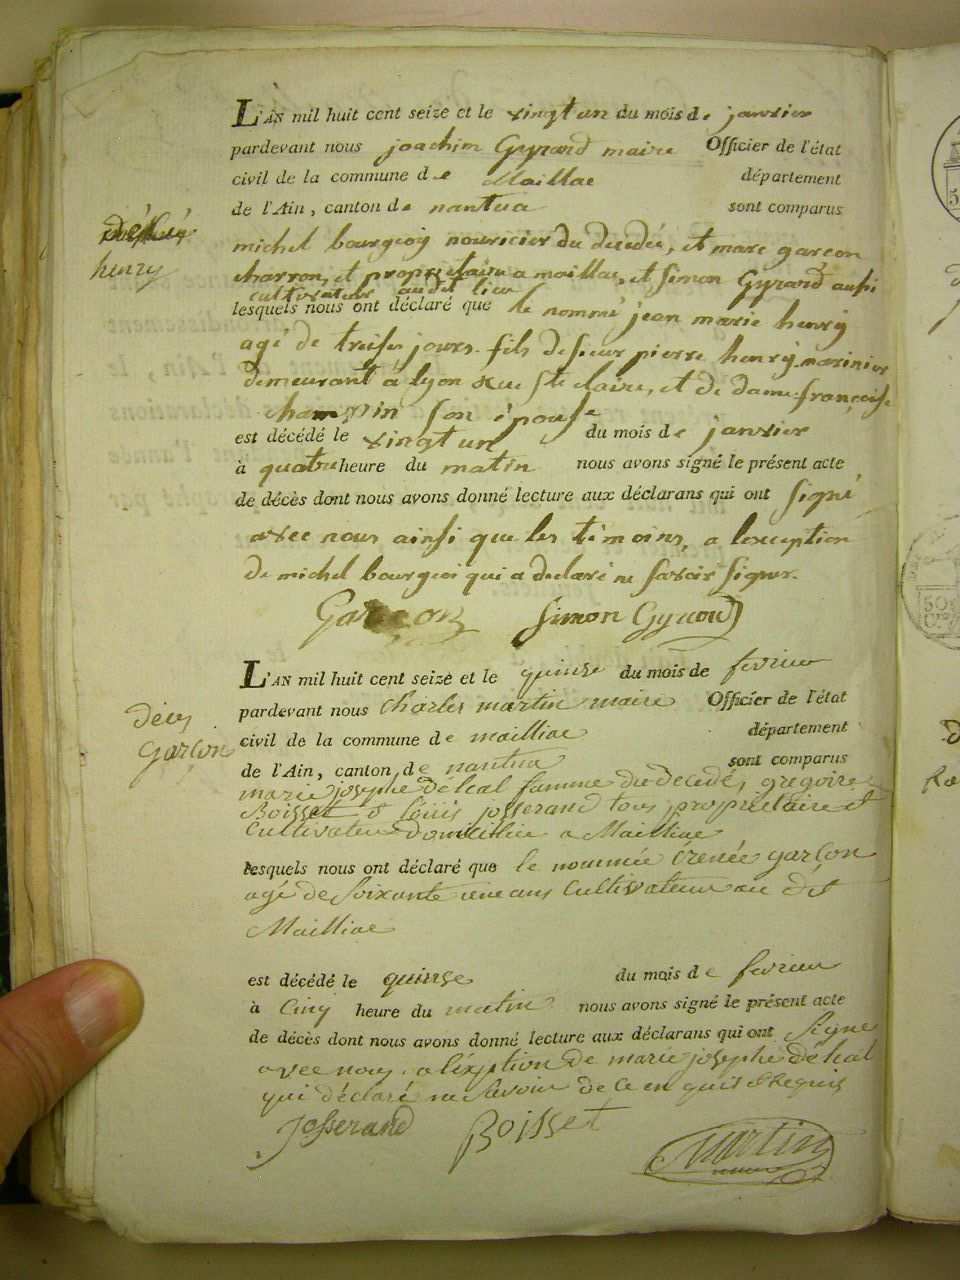 L'AN mil huit cent seize et le vingt un du mois de janvier
pardevant nous joachim Gyraud maire Officier de l'état
civil de la commune de Maillac département
de l'Ain, canton de nantua sont comparus
henry
michel bourgeoy nouricier du décédé, et marc garçon
charron, et propriétaire a maillac, et Simon Gyraud aussi
cultivateur audit lieu
lesquels nous ont déclaré que le nommé jean marie henry
agé de treise jours fils de sieur pierre henry marinier
demeurant à lyon rue Ste claire, et de dame françoise
son épouse
est décédé le vingt un du mois de janvier
à quatre heure du matin nous avons signé le présent acte
de décès dont nous avons donné lecture aux déclarans qui ont signé
avec nous ainsi que les témoins, a l'exception
de michel bourgeoi qui a declaré ne savoir signer.
Garçon Simon Gyraud
L'AN mil huit cent seize et le quinse du mois de fevrier
pardevant nous Charles martin maire Officier de l'état
décès
garçon
civil de la commune de mailliac département
de l'Ain, canton de nantua sont comparus
marie josephe déléal famme du decedé, gregoire
Boisset & Louis josserand tous proprietaire et
Cultivateur domicilliée a Mailliac
lesquels nous ont déclaré que le nommée érenée garçon
agé de soixante ans Cultivateur au dit
Mailliac
est décédé le quinse du mois de fevrier
à Cinq heure du matin nous avons signé le présent acte
de décès dont nous avons donné lecture aux déclarans qui ont signe
avec nous a l'exption de marie josephe déléal
qui déclaré ne savoir de ce en quis & Requis
Josserand Boisset
Martin